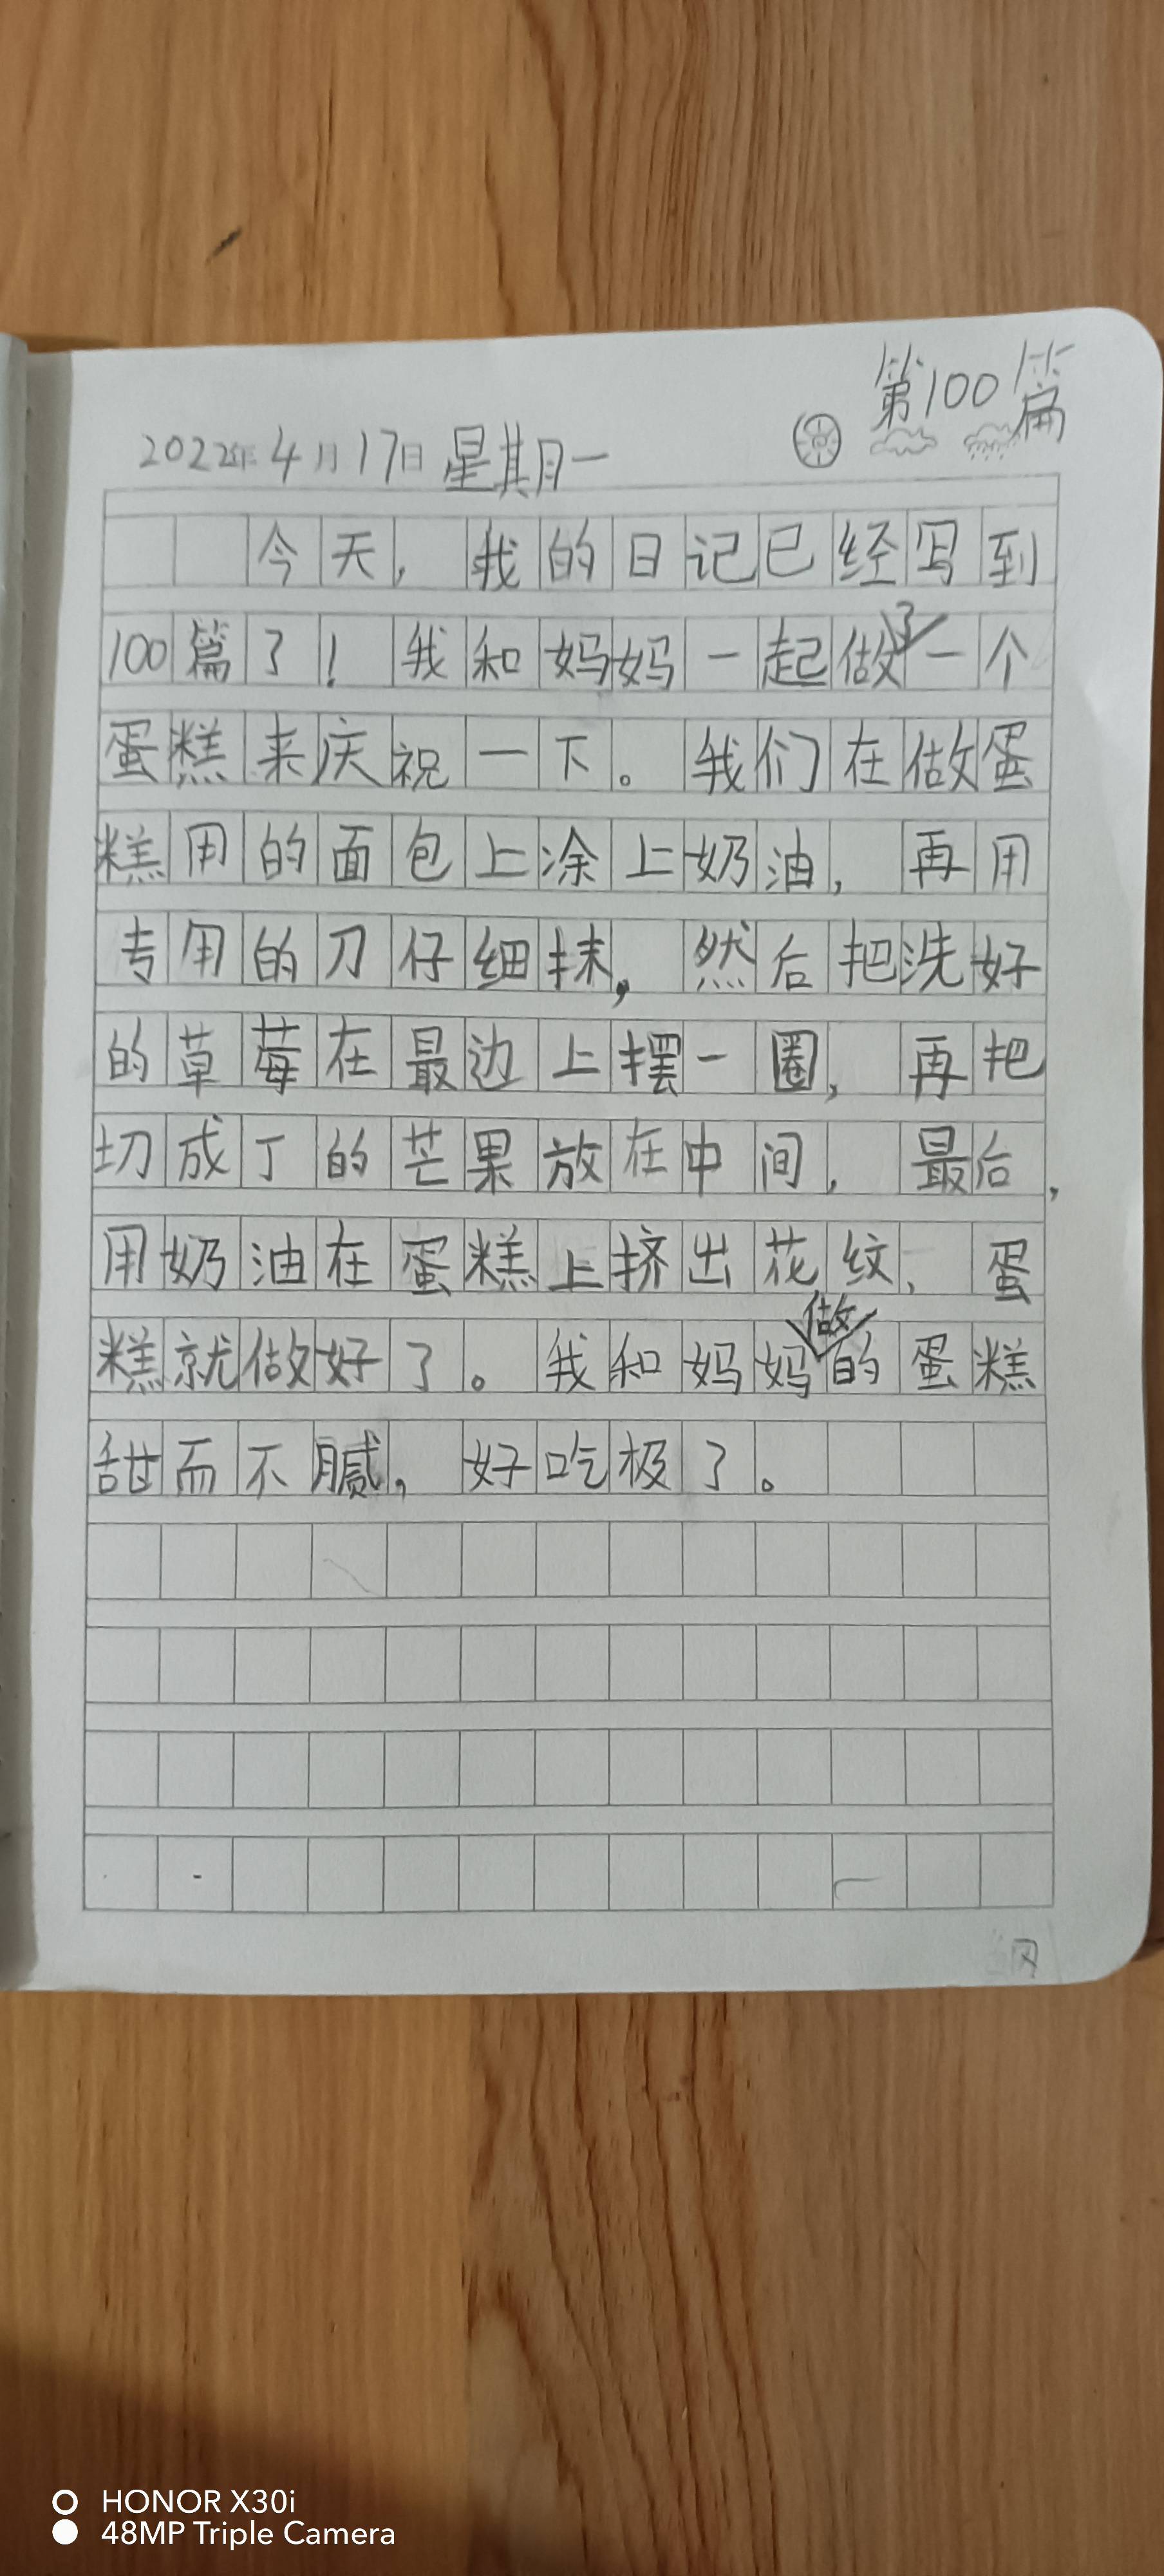 第100篇
2022年4月17日 星其月一
今天，我的日记已经写到
100篇了！我和妈妈一起做了一个
蛋糕来庆祝一下。我们在做蛋
糕用的面包上涂上奶油，再用
专用的刀仔细抹，然后把洗好
的草莓在最边上摆一圈，再把
切成丁的芒果放在中间，最后，
用奶油在蛋糕上挤出花纹，蛋
糕就做好了。我和妈妈做的蛋糕
甜而不腻，好吃极了。
HONOR X30i
48MP Triple Camera